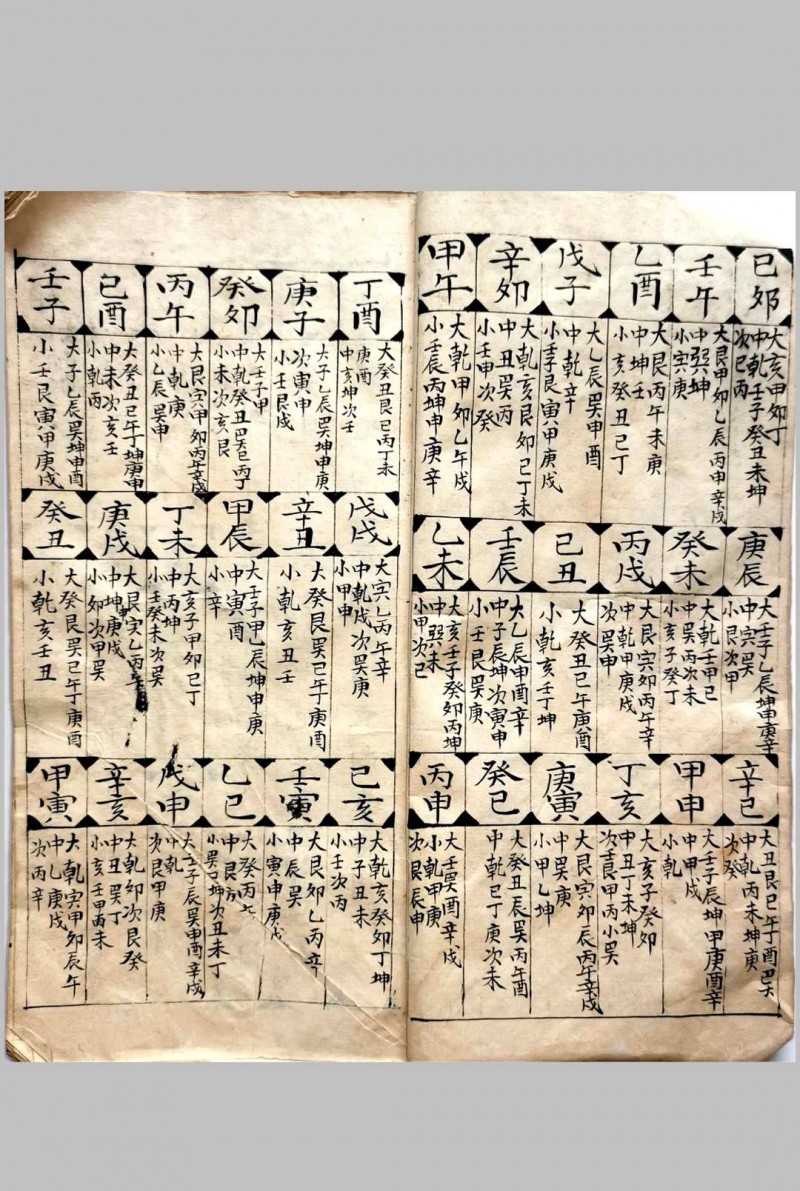 己卯
大亥甲卯丁
中乾壬子癸丑未坤
次巳丙
庚辰
大壬子乙辰坤申庚辛
中寅巽
小艮次甲
辛巳
大丑艮己午丁酉
中乾丙未坤庚
次癸
壬午
大艮甲卯乙辰丙申辛戌
中巽坤
小寅庚
癸未
大乾壬甲己
中巽丙次未
小亥子癸丁
甲申
大壬子辰坤甲庚酉辛
中甲戌
小乾
乙酉
大艮丙午未庚
中坤壬
小亥癸丑己丁
丙戌
大艮寅卯丙午辛
中乾甲庚戌
次巽申
丁亥
大亥子癸卯
中丑丁未坤
次艮甲丙小巽
戊子
大乙辰巽申酉
中乾辛
小壬艮寅甲庚戌
己丑
大癸丑己午庚酉
小乾亥壬坤
庚寅
大艮寅卯辰丙午辛戌
中巽庚
小甲乙坤
辛卯
大乾亥艮卯己丁未
中丑巽丙
小壬申次癸
壬辰
大乙辰申酉辛
中子辰坤次寅申
小壬艮巽庚
癸巳
大癸丑辰巽丙午酉
中乾巳丁庚次未
甲午
大乾甲卯乙午戌
小壬辰丙坤申庚辛
乙未
大亥壬子癸卯丙坤
中巽未
小甲次己
丙申
大壬巽酉辛戌
小乾甲庚
次艮辰申
丁酉
大癸丑艮己丙丁未
庚酉
中亥坤次壬
戊戌
大寅乙丙午辛
中乾戌次巽庚
小甲申
己亥
大乾亥癸卯丁坤
中子丑未
小壬次丙
庚子
大子乙辰巽坤申庚
次寅申
小壬艮戌
辛丑
大癸艮巽己午庚酉
小乾亥丑壬
壬寅
大艮卯乙丙辛
中辰巽
小寅申庚戌
癸卯
大壬子甲
中乾癸丑巽巳丙丁
小未次亥艮
甲辰
大壬子甲乙辰坤申庚
中寅酉
小辛
乙巳
大癸丙
中艮
小巽己坤次丑丁
丙午
大艮寅甲卯丙午辛戌
中乾庚
小乙辰巽申
丁未
大亥子甲卯己丁
中丙坤
小壬癸未次巽
戊申
大壬子辰巽申酉辛戌
中乾
次艮甲庚
己酉
大癸丑己午丁坤庚申
中未次亥壬
小乾丙
庚戌
大艮寅乙丙午
中坤庚戌
小卯次甲巽
辛亥
大乾卯次艮癸
中丑巽丁
小亥壬甲丙未
壬子
大子乙辰巽坤申酉
小壬艮寅甲庚戌
癸丑
大癸艮巽己午丁庚酉
小乾亥壬丑
甲寅
大乾寅甲卯辰午
中乙庚戌
次丙辛